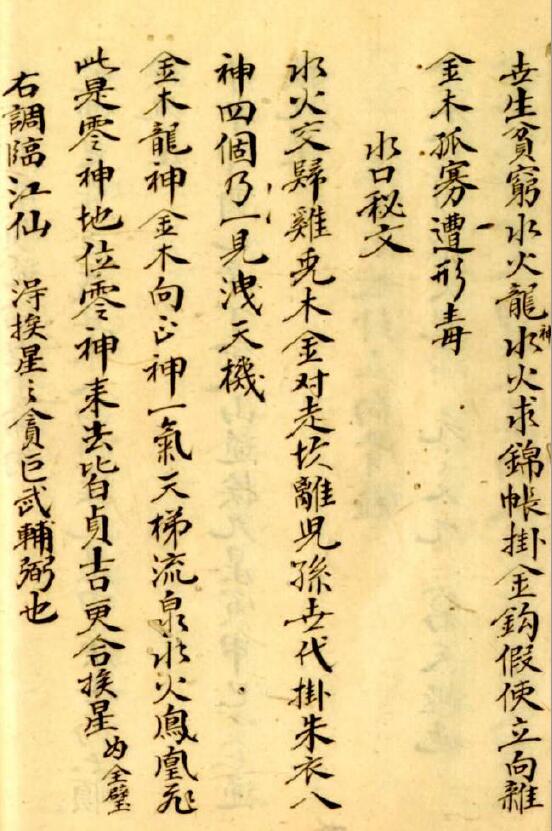 世生貧窮水火龍神水火求錦帳掛金鈎假使立向離
金木孤寡遭形毒
水口秘文
水火交歸雞兎木金对走坎離児孫世代掛朱衣八
神四個乃一見洩天機
金木龍神金木向正神一氣天梯流泉水火鳳凰飛
此是零神地位零神来去皆貞吉更合挨星為全璧
右調臨江仙 淂挨星之貪巨武輔弼也